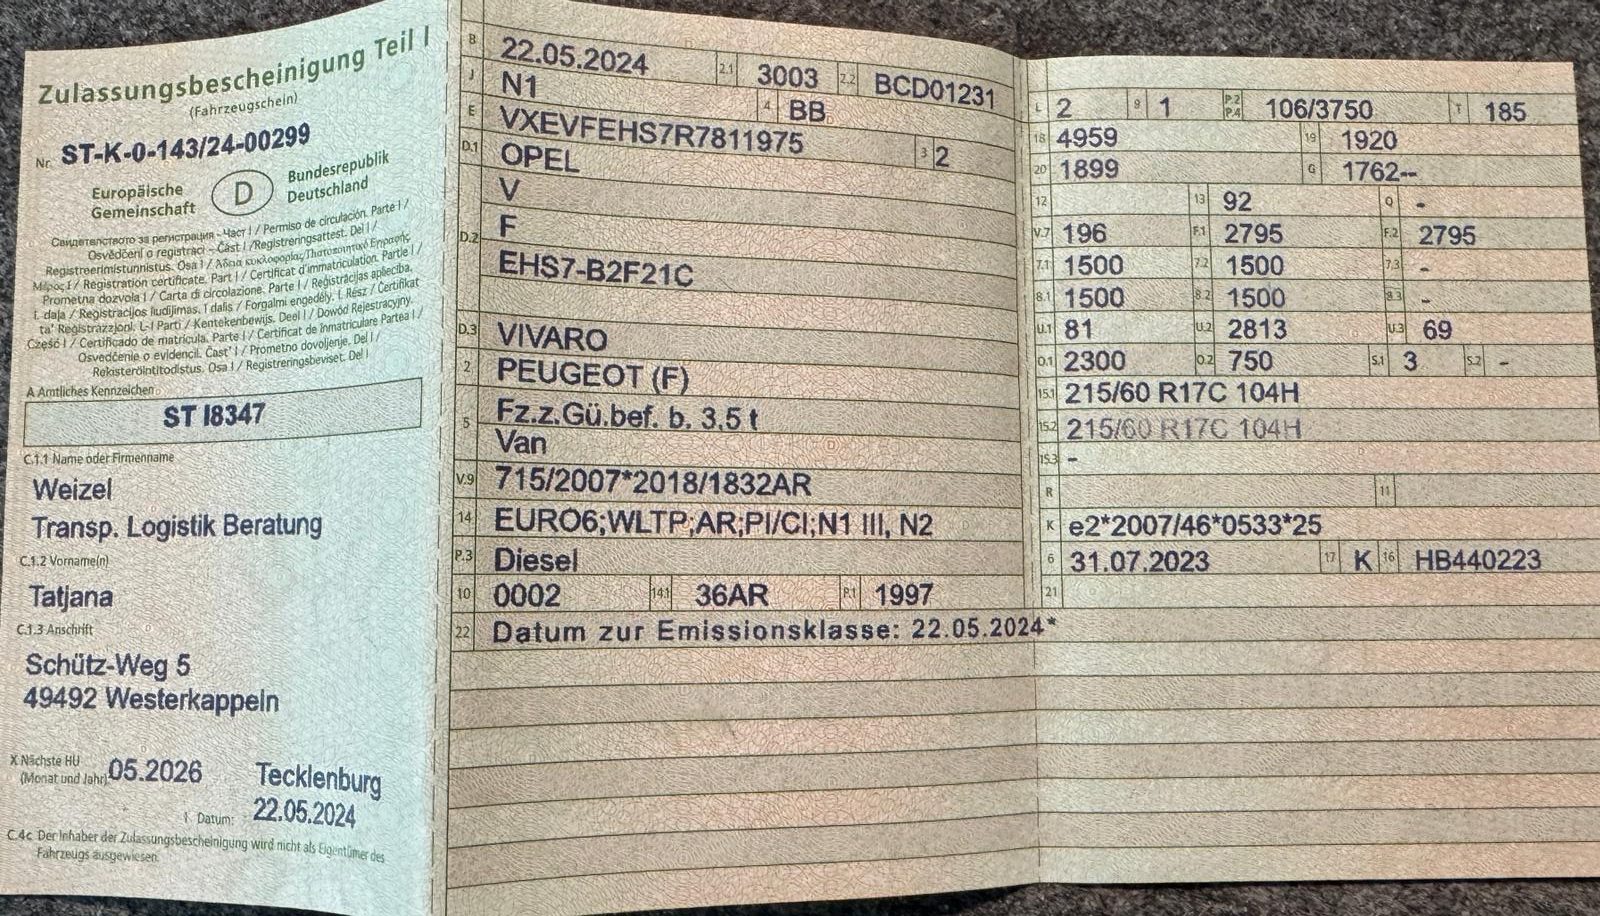 Zulassungsbescheinigung Teil I
(Fahrzeugschein)
Nr. ST-K-0-143/24-00299
Europäische Gemeinschaft
D
Bundesrepublik Deutschland
Свидетелството за регистрация - Част I / Permiso de circulación. Parte I /
Osvědčení o registraci - Část I / Registreringsattest. Del I /
Registreerimistunnistus. Osa I / Άδεια κυκλοφορίας/Πιστοποιητικό Εγγραφής
Μέρος I / Registration certificate. Part I / Certificat d'immatriculation. Partie I /
Prometna dozvola I / Carta di circolazione. Parte I / Reģistrācijas apliecība.
I. daļa / Registracijos liudijimas. I dalis / Forgalmi engedély. I. Rész / Ċertifikat
ta' Reġistrazzjoni. L-I Parti / Kentekenbewijs. Deel I / Dowód Rejestracyjny.
Część I / Certificado de matrícula. Parte I / Certificat de înmatriculare Partea I /
Osvedčenie o evidencii. Časť I / Prometno dovoljenje. Del I /
Rekisteröintitodistus. Osa I / Registreringsbeviset. Del I
A Amtliches Kennzeichen
ST I8347
C.1.1 Name oder Firmenname
Weizel
Transp. Logistik Beratung
C.1.2 Vorname(n)
Tatjana
C.1.3 Anschrift
Schütz-Weg 5
49492 Westerkappeln
X Nächste HU
(Monat und Jahr) 05.2026
Tecklenburg
I Datum: 22.05.2024
C.4c Der Inhaber der Zulassungsbescheinigung wird nicht als Eigentümer des
Fahrzeugs ausgewiesen.
B 22.05.2024 2.1 3003 2.2 BCD01231
J N1 4 BB
E VXEVFEHS7R7811975 3 2
D.1 OPEL
V
D.2 F
EHS7-B2F21C
D.3 VIVARO
2 PEUGEOT (F)
5 Fz.z.Gü.bef. b. 3,5 t
Van
V.9 715/2007*2018/1832AR
14 EURO6;WLTP;AR;PI/CI;N1 III, N2
P.3 Diesel
10 0002 14.1 36AR P.1 1997
22 Datum zur Emissionsklasse: 22.05.2024*
L 2 9 1 P.2 P.4 106/3750 T 185
18 4959 19 1920
20 1899 G 1762--
12 13 92 Q -
V.7 196 F.1 2795 F.2 2795
7.1 1500 7.2 1500 7.3 -
8.1 1500 8.2 1500 8.3 -
U.1 81 U.2 2813 U.3 69
O.1 2300 O.2 750 S.1 3 S.2 -
15.1 215/60 R17C 104H
15.2 215/60 R17C 104H
15.3 -
R 11
K e2*2007/46*0533*25
6 31.07.2023 17 K 16 HB440223
21